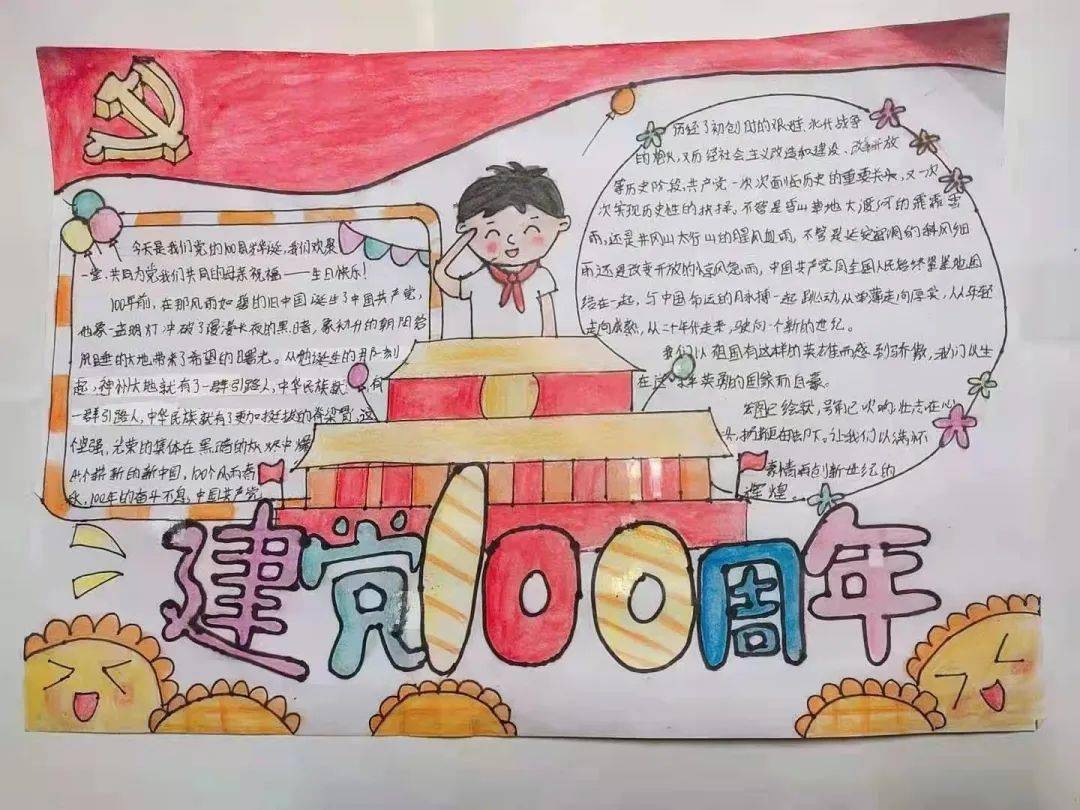 今天是我们党的100周岁华诞，我们欢聚
一堂，共同为党我们共同的母亲祝福——生日快乐！
100年前，在那风雨如磐的旧中国诞生了中国共产党，
他象一盏明灯冲破了漫漫长夜的黑暗，象初升的朝阳给
沉睡的大地带来了希望的曙光。从她诞生的那刻
起，神州大地就有了一群引路人，中华民族就 有
一群引路人，中华民族就有了更加挺拔的脊梁 这
倔强，光荣的集体在黑暗的 中爆
新的新中国，100个风雨春
秋，100年的奋斗不息，中国共产党
历经了初创时的艰难、 战争
的炮火，又历经社会主义改造和建设、改革开放
等历史阶段，共产党一次次面临历史的重要关头，又一次
次实现历史性的抉择。不管是雪山草地大渡河的 霜雪
雨，还是井冈山太行山的腥风血雨，不管是延安窑洞的斜风细
雨还是改变开放的 风急雨，中国共产党同全国人民始终紧紧地团
结在一起，与中国命运的脉搏一起跳动，从单薄走向厚实，从年轻
走向成熟，从二十年代走来，驶向一个新的世纪。
我们以祖国有这样的英雄而感到骄傲，我们以生
在这 英勇的国家而自豪。
蓝图已绘就，号角已吹响，壮志在心
头， 在脚下。让我们以满怀
豪情再创新世纪的
辉煌。
建党100周年